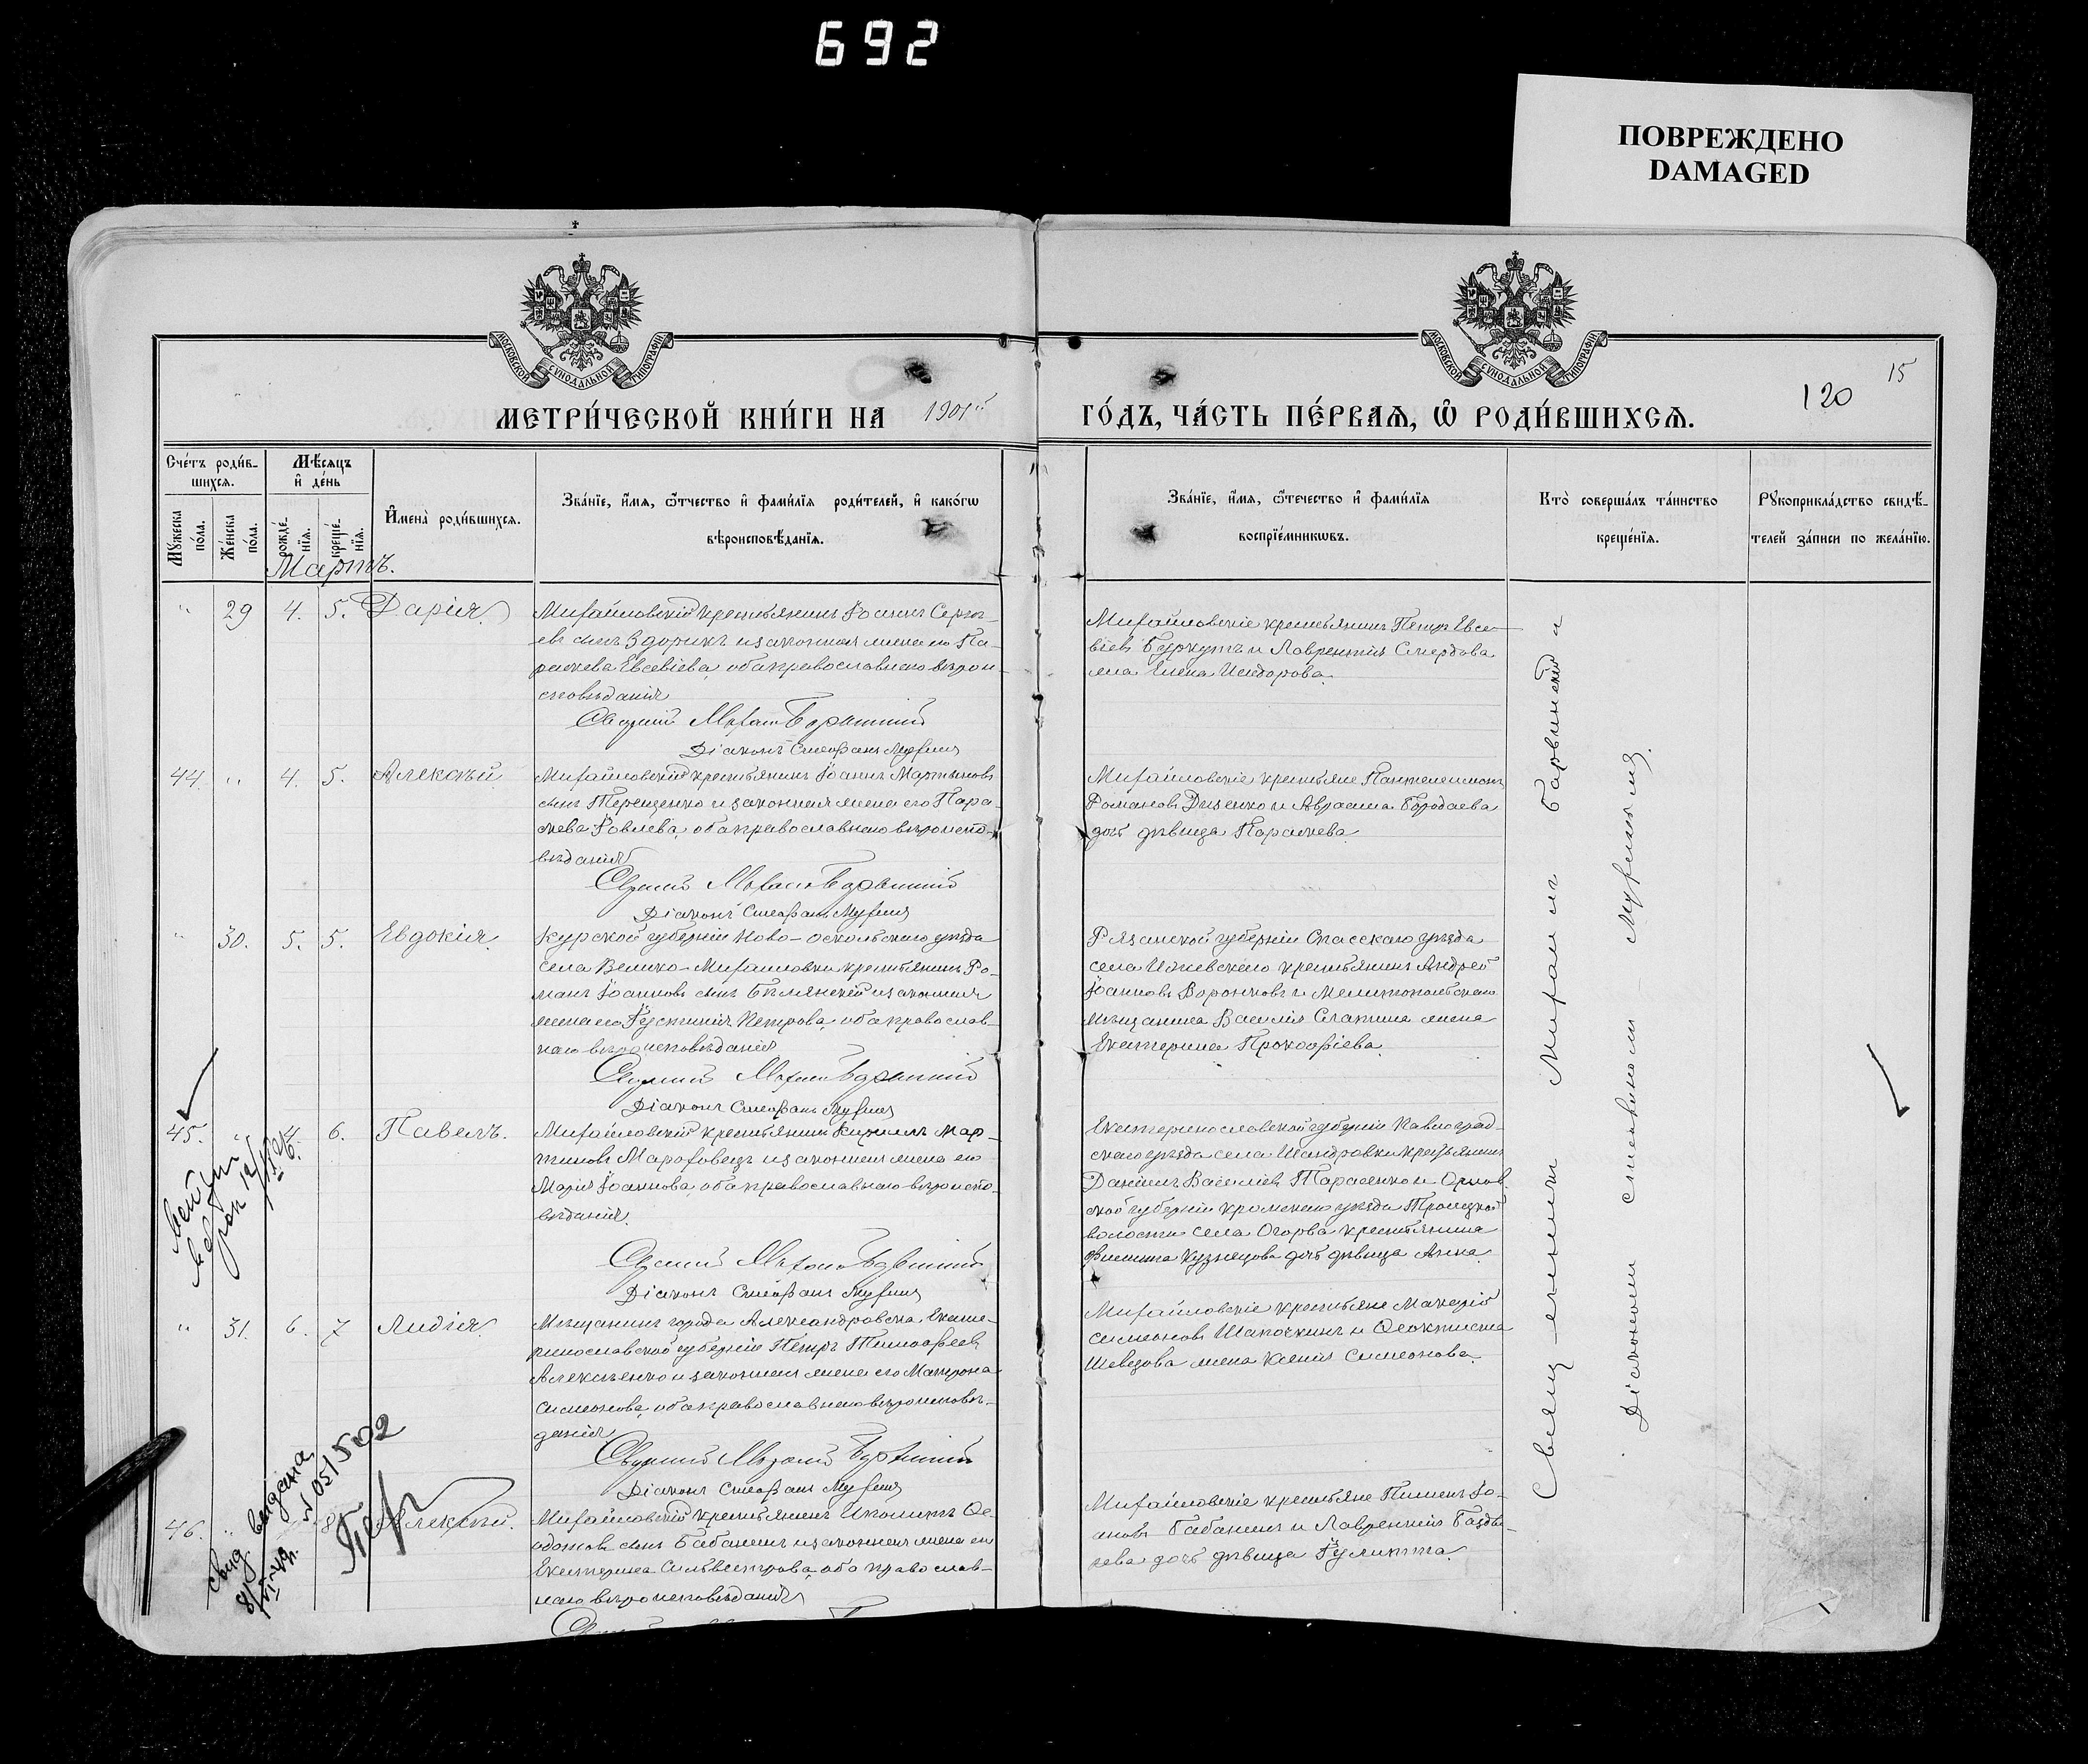 692
ПОВРЕЖДЕНО
DAMAGED
МОСКОВСКОЙ СѴНОДАЛЬНОЙ ТИПОГРАФІИ
МОСКОВСКОЙ СѴНОДАЛЬНОЙ ТИПОГРАФІИ
15
120
МЕТРИ́ЧЕСКОЙ КНИ́ГИ НА 1901й ГО́ДЪ, ЧА́СТЬ ПЕ́РВАѦ, Ѡ РОДИ́ВШИХСѦ.
Сче́тъ роди́в-
шихсѧ.
Мꙋ́жеска
по́ла.
Же́нска
по́ла.
Мѣ́сѧцъ
и҆ де́нь
рожде́-
нїѧ.
креще́-
нїѧ.
И҆мена̀ роди́вшихсѧ.
Зва́нїе, и҆́мѧ, ѻ҆́тчество и҆ фами́лїѧ роди́телей, и҆ како́гѡ
вѣроисповѣ́данїѧ.
Зва́нїе, и҆́мѧ, ѻ҆те́чество и҆ фами́лїѧ
воспрїе́мникѡвъ.
Кто̀ соверша́лъ та́инство
креще́нїѧ.
Рꙋкоприкла́дство свидѣ́-
телей за́писи по жела́нїю.
Мартъ.
" 29 4. 5. Дарія
Михайловскій крестьянинъ Іоаннъ Сергі-
евъ сынъ Здорикъ и законная жена его Па-
раскева Евсевіева, оба православнаго вѣрои-
сповѣданія
Діаконъ Стефанъ
Михайловскіе крестьянинъ Петръ Евсе-
віевъ Буркутъ и Лаврентія Смердова
жена Елена Исидорова.
44. " 4. 5. Алексѣй
Михайловскій крестьянинъ Іоаннъ Мартыновъ
сынъ Терещенко и законная жена его Пара-
скева Іовлева, оба православнаго вѣроиспо-
вѣданія
Діаконъ Стефанъ
Михайловскіе крестьяне Пантелеимонъ
Романовъ Диденко и Авраама Бородаева
дочь дѣвица Параскева.
" 30. 5. 5. Евдокія.
Курской губерніи Ново-оскольскаго уѣзда
села Велико-Михайловки крестьянинъ Ро-
манъ Іоанновъ сынъ Бѣлянскій и законная
жена его Іустинія Петрова, оба православ-
наго вѣроисповѣданія
Діаконъ Стефанъ
Рязанской губерніи Спасскаго уѣзда
села Ижевскаго крестьянинъ Андрей
Іоанновъ Воронковъ и Мелитопольскаго
мѣщанина Василія Слатина жена
Екатерина Прокофіева.
45. " 4. 6. Павелъ.
Михайловскій крестьянинъ Кириллъ Мар-
тиновъ Мароховецъ и законная жена его
Марія Іоаннова, оба православнаго вѣроиспо-
вѣданія.
Діаконъ Стефанъ
Екатеринославской губерніи Павлоград-
скаго уѣзда села Шандровки крестьянинъ
Даніилъ Василіевъ Тарасенко и Орлов-
ской губерніи Кромскаго уѣзда Троицкой
волости села Огорова крестьянина
Филиппа Кузнецова дочь дѣвица Анна.
" 31. 6. 7 Лидія.
Мѣщанинъ города Александровска Екате-
ринославской губерніи Петръ Тимофеевъ
Алексѣенко и законная жена его Матрона
Симеонова, оба православнаго вѣроисповѣ-
данія
Діаконъ Стефанъ
Михайловскіе крестьяне Макарій
Симеоновъ Шапочкинъ и Ѳеоктиста
Шевцова жена Ксенія Симеонова.
46. " 8 Алексѣй.
Михайловскій крестьянинъ Ипполитъ Ѳе-
одотовъ сынъ Бабанинъ и законная жена его
Екатерина Сильвестрова, оба православ-
наго вѣроисповѣданія
Михайловскіе крестьяне Пименъ Іо-
анновъ Бабанинъ и Лаврентія Баздва-
рева дочь дѣвица Іулитта.
Священникъ Михаилъ
Діаконъ
свид. выдана
051502